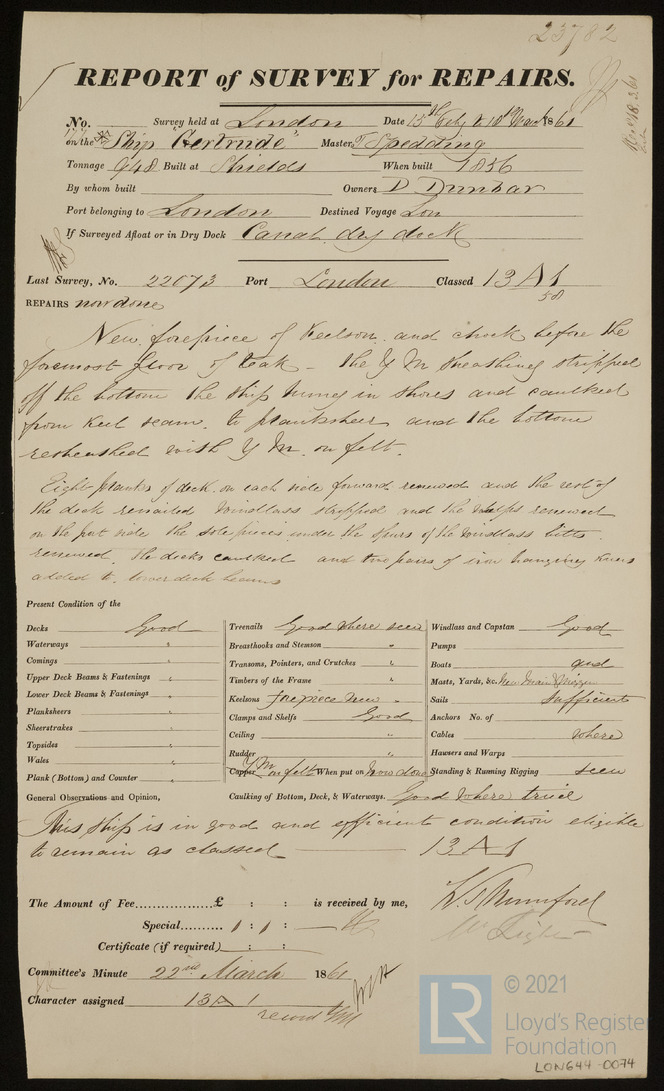 23782
REPORT of SURVEY for REPAIRS.
No. Survey held at London Date 15th Feby & 10th March 1861
on the Ship "Gertrude" Master T Spedding
Tonnage 948 Built at Shields When built 1856
By whom built Owners D Dunbar
Port belonging to London Destined Voyage Lon
If Surveyed Afloat or in Dry Dock Canal dry dock
Last Survey, No. 22073 Port London Classed 13 A 1
58
REPAIRS now done
New forepiece of Keelson and chock before the
foremost floor of teak - the Y M Sheathing stripped
off the bottom the ship hung in shores and caulked
from keel seam to planksheer and the bottom
resheathed with Y M on felt.
Eight planks of deck on each side forward renewed and the rest of
the deck renailed Windlass stripped and the whelps renewed
on the port side the solepieces under the spurs of the windlass bitts
renewed, the decks caulked and two pairs of iron hanging knees
added to lower deck beams
Present Condition of the
Decks Good Treenails Good where seen Windlass and Capstan Good
Waterways " Breasthooks and Stemson " Pumps
Comings " Transoms, Pointers, and Crutches " Boats and
Upper Deck Beams & Fastenings " Timbers of the Frame " Masts, Yards, &c. New Main & Mizen
Lower Deck Beams & Fastenings " Keelsons fore piece New Sails Sufficient
Planksheers " Clamps and Shelfs Good Anchors No. of
Sheerstrakes " Ceiling " Cables where
Topsides " Rudder " Hawsers and Warps
Wales " Copper Y M on felt When put on Now done Standing & Running Rigging seen
Plank (Bottom) and Counter "
General Observations and Opinion, Caulking of Bottom, Deck, & Waterways. Good where tried
This Ship is in good and efficient condition eligible
to remain as classed 13 A 1
The Amount of Fee £ : : is received by me,
Special 1 : 1 :
Certificate (if required) : :
Committee's Minute 22nd March 1861
Character assigned 13 A 1
record YM
© 2021
LR
Lloyd's Register
Foundation
LON644-0074